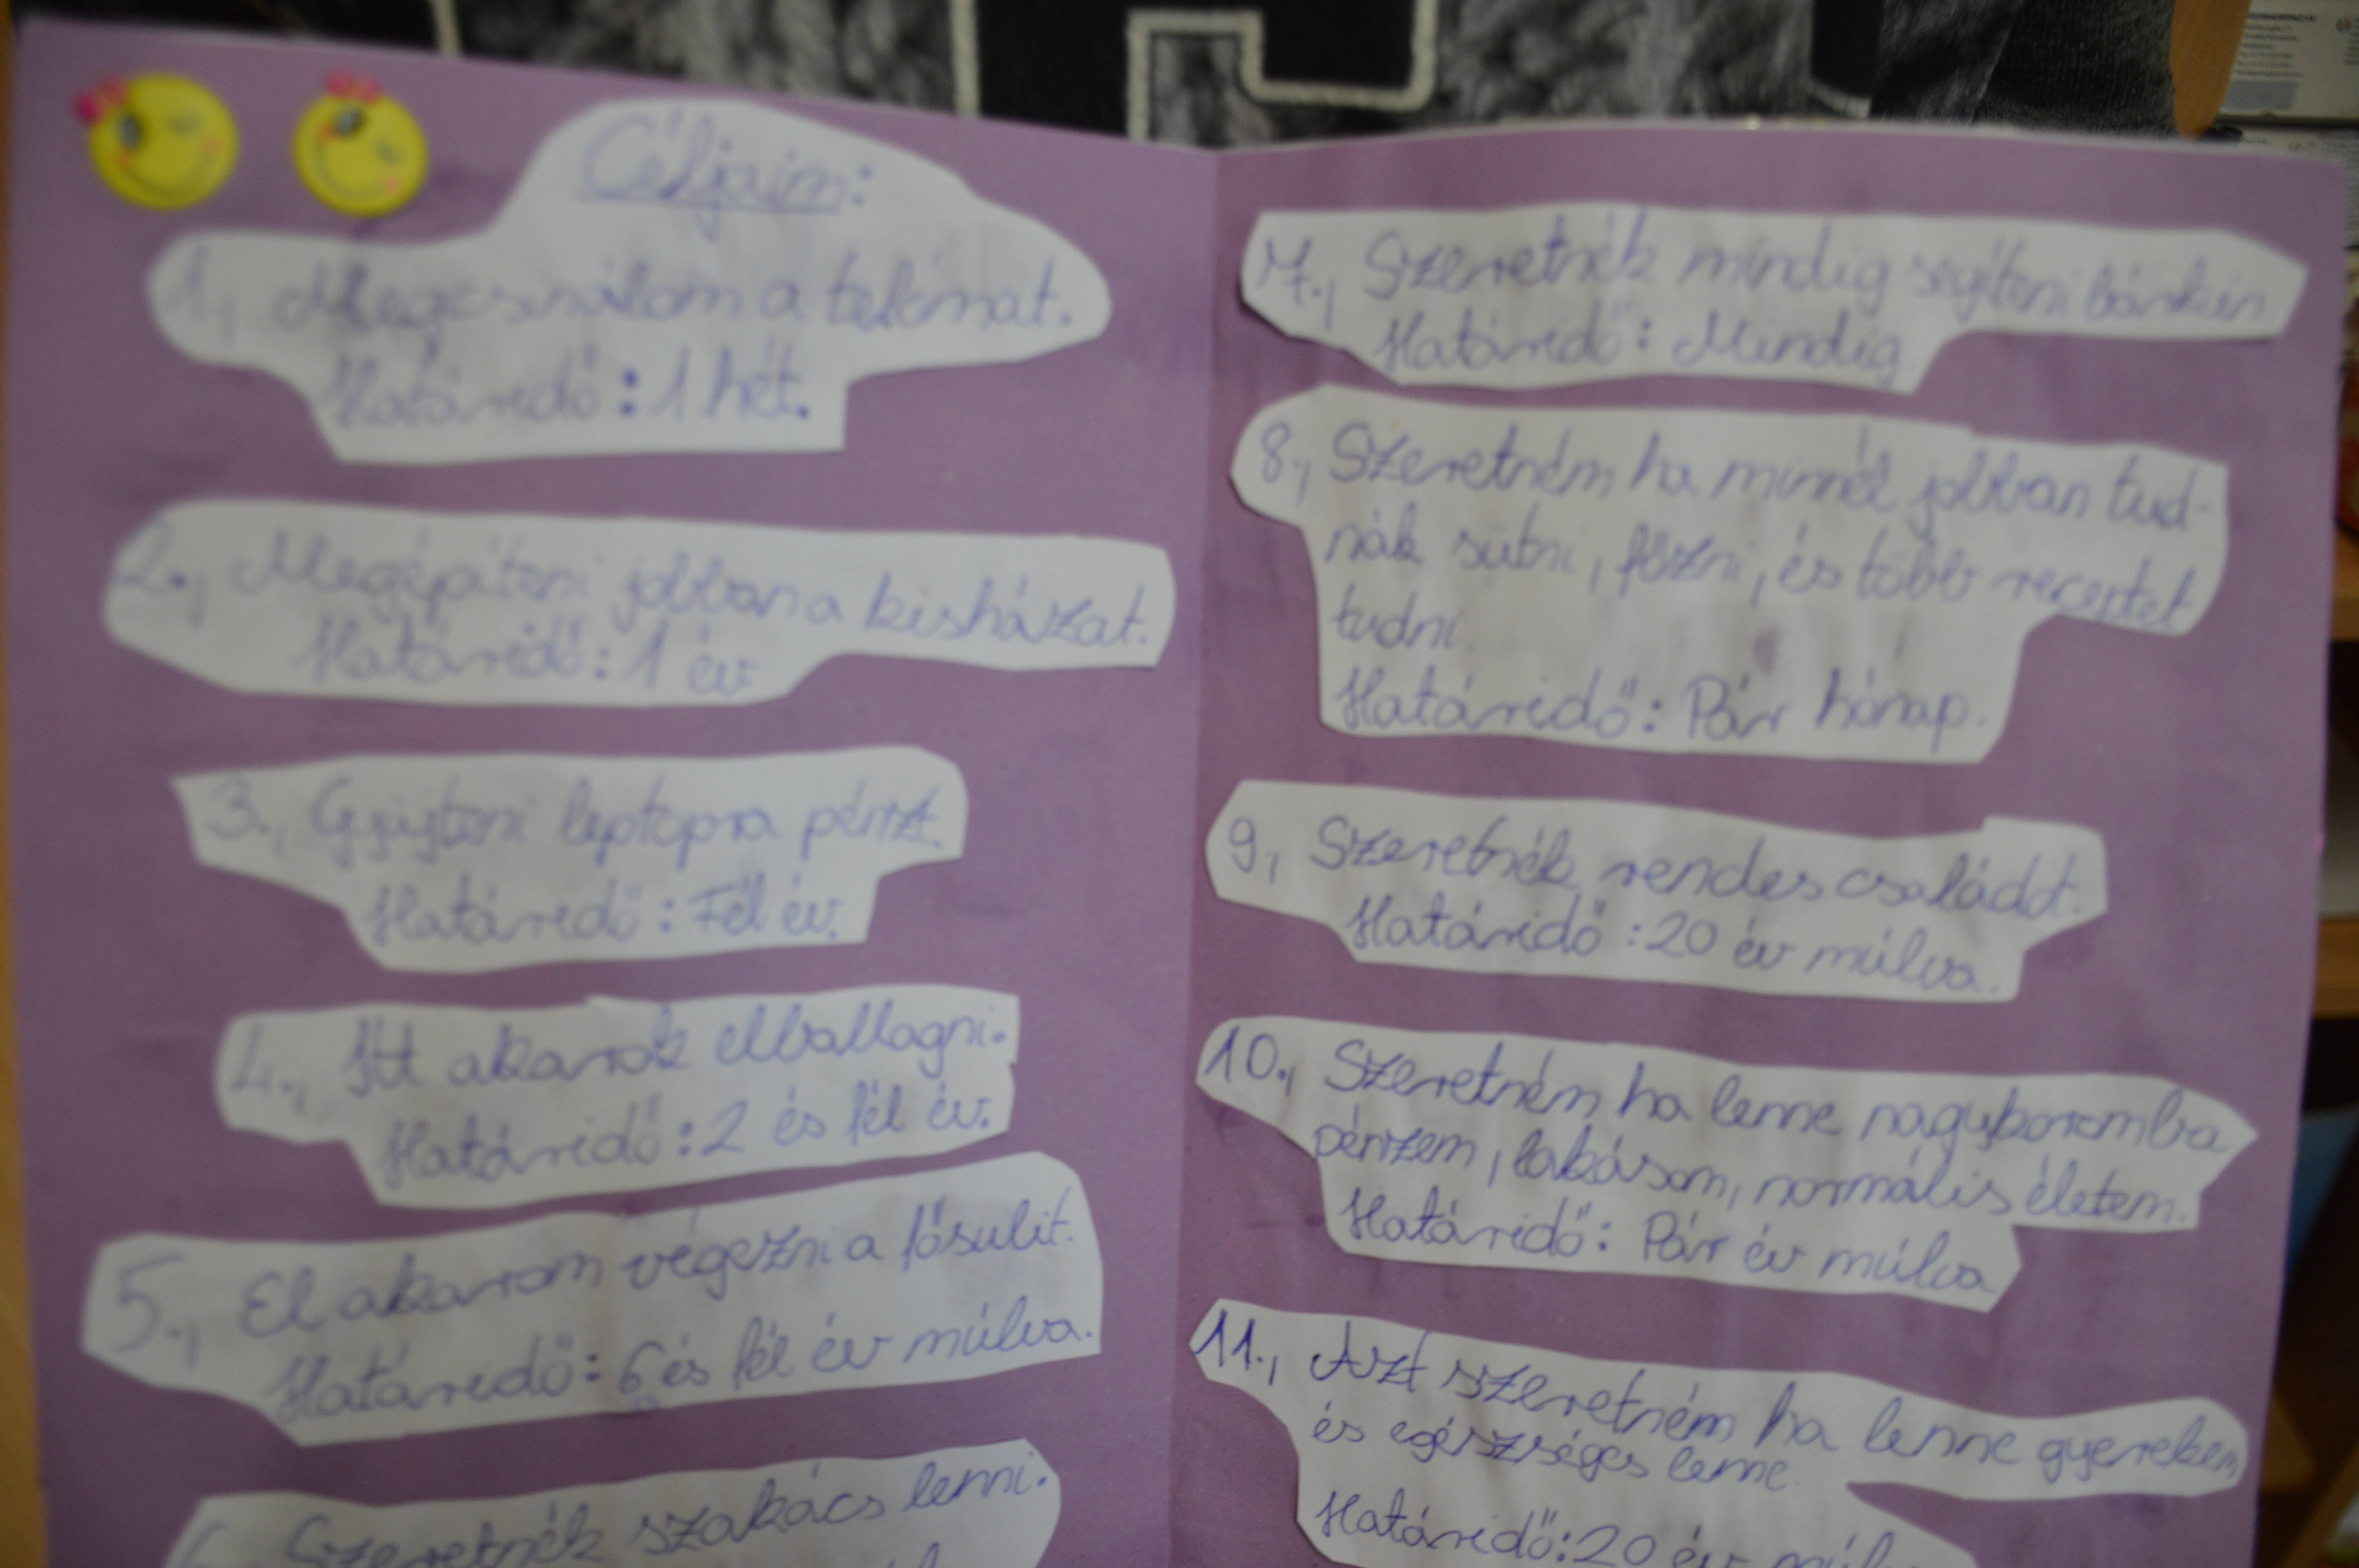 Céljaim:
1., Megcsinálom a telómat.
Határidő: 1 hét.
2., Megépíteni jobban a kisházat.
Határidő: 1 év
3., Gyűjteni leptopra pénzt.
Határidő: Fél év.
4., Itt akarok elballagni.
Határidő: 2 és fél év.
5., El akarom végezni a fősulit.
Határidő: 6 és fél év múlva.
6., Szeretnék szakács lenni.
7., Szeretnék mindig segíteni bárkin.
Határidő: Mindig
8., Szeretném ha minnél jobban tud-
nák sütni, főzni, és több receptet
tudni.
Határidő: Pár hónap.
9., Szeretnék rendes családot.
Határidő: 20 év múlva.
10., Szeretném ha lenne nagykoromba
pénzem, lakásom, normális életem.
Határidő: Pár év múlva
11., Azt szeretném ha lenne gyerekem
és egészséges lenne.
Határidő: 20 év múlva